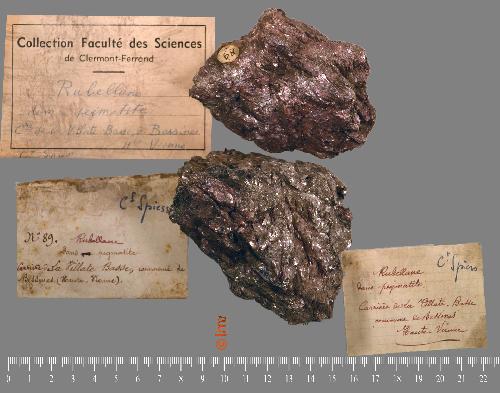 Collection Faculté des Sciences
de Clermont-Ferrand
Rubellane
dans pegmatite
de la Villate Basse, à Bessines
Hte Vienne
Ct Spiess
N° 89. Rubellane
dans pegmatite
Carrière La Villate Basse, commune de
Bessines (Haute Vienne).
Ct Spiess
Rubellane
dans pegmatite
Carrière de la Villate-Basse
commune de Bessines
Haute Vienne
0 1 2 3 4 5 6 7 8 9 10 11 12 13 14 15 16 17 18 19 20 21 22